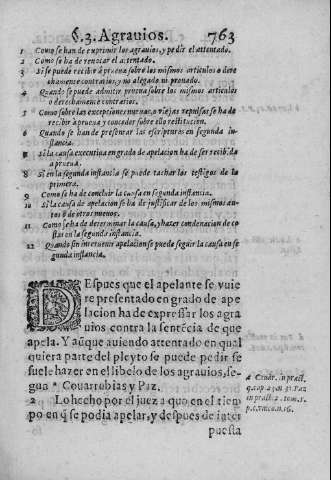 §.3. Agrauios. 763
1 Como se han de exprimir los agrauios, y pedir el attentado.
2 Como se ha de reuocar el attentado.
3 Si se puede recibir à prueua sobre los mismos articulos o dere
chamente contrarios, y no alegado ni prouado.
4 Quando se puede admitir prueua sobre los mismos articulos
o derechamente contrarios.
5 Como sobre las excepciones nueuas, o viejas repulsas se ha de
recibir à prueua y conceder sobre ello restitucion.
6 Quando se han de presentar las escripturas en segunda ins-
tancia.
8 Si la causa executiua en grado de apelacion ha de ser recibida
a prueua.
8 Si en la segunda instancia se puede tachar los testigos de la
primera.
9 Como se ha de concluir la causa en segunda instancia.
10 Si la causa de apelacion se ha de justificar de los mismos au-
tos o de otros nueuos.
11 Como se ha de determinar la causa, y hazer condenacion de co
stas en la segunda instancia.
12 Quando sin interuenir apelacion se puede seguir la causa en se
gunda instancia.
DEspues que el apelante se vuie
re presentado en grado de ape
lacion ha de expressar los agra
uios contra la sentẽcia de que
apela. Y aũque auiendo attentado en qual
quiera parte del pleyto se puede pedir se
suele hazer en el libelo de los agrauios, se-
gun ª Couarrubias y Paz.
2 Lo hecho por el juez a quo en el tiem
po en q̃ se podia apelar, y despues de inter
puesta
a Couar. in pract.
q. cap. 23. n. 3. Paz
in pract. 2. tom. 1.
p. c. vnico. n. 16.